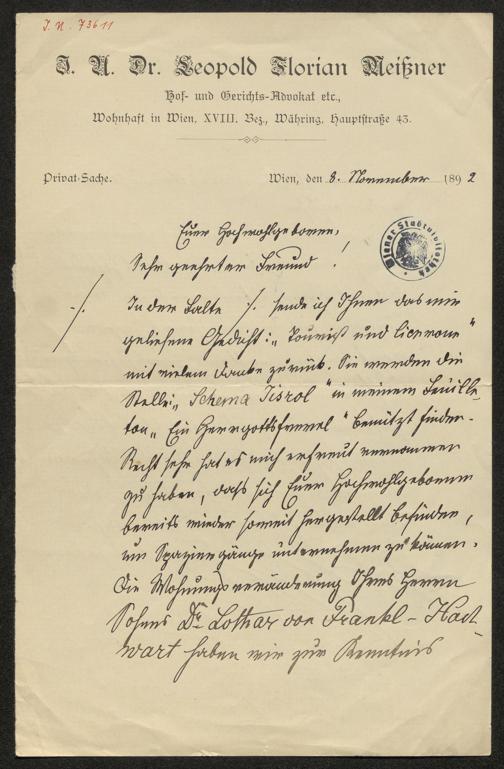 J. N. 73611
J. U. Dr. Leopold Florian Meißner
Hof- und Gerichts-Advokat etc.,
Wohnhaft in Wien, XVIII. Bez., Währing, Hauptstraße 43.
Privat-Sache.
Wien, den 8. November 1892
Wiener Stadtbibliothek
Euer Hochwohlgeboren,
Sehr geehrter Freund!
In der Falte ·/. sende ich Ihnen das mir
·/.
geliehene Gedicht: „Tourist und Cicerone"
mit vielem Danke zurück. Sie werden die
Stelle: „Schema Jisrol" in meinem Feuille-
ton „Ein Herrgottsfrevel" benützt finden.
Recht sehr hat es mich erfreut vernommen
zu haben, daß sich Euer Hochwohlgeboren
bereits wieder soweit hergestellt befinden,
um Spaziergänge unternehmen zu können.
Die Wohnungsveränderung Ihres Herrn
Sohnes Dr Lothar von Frankl-Hoch-
wart haben wir zur Kenntnis